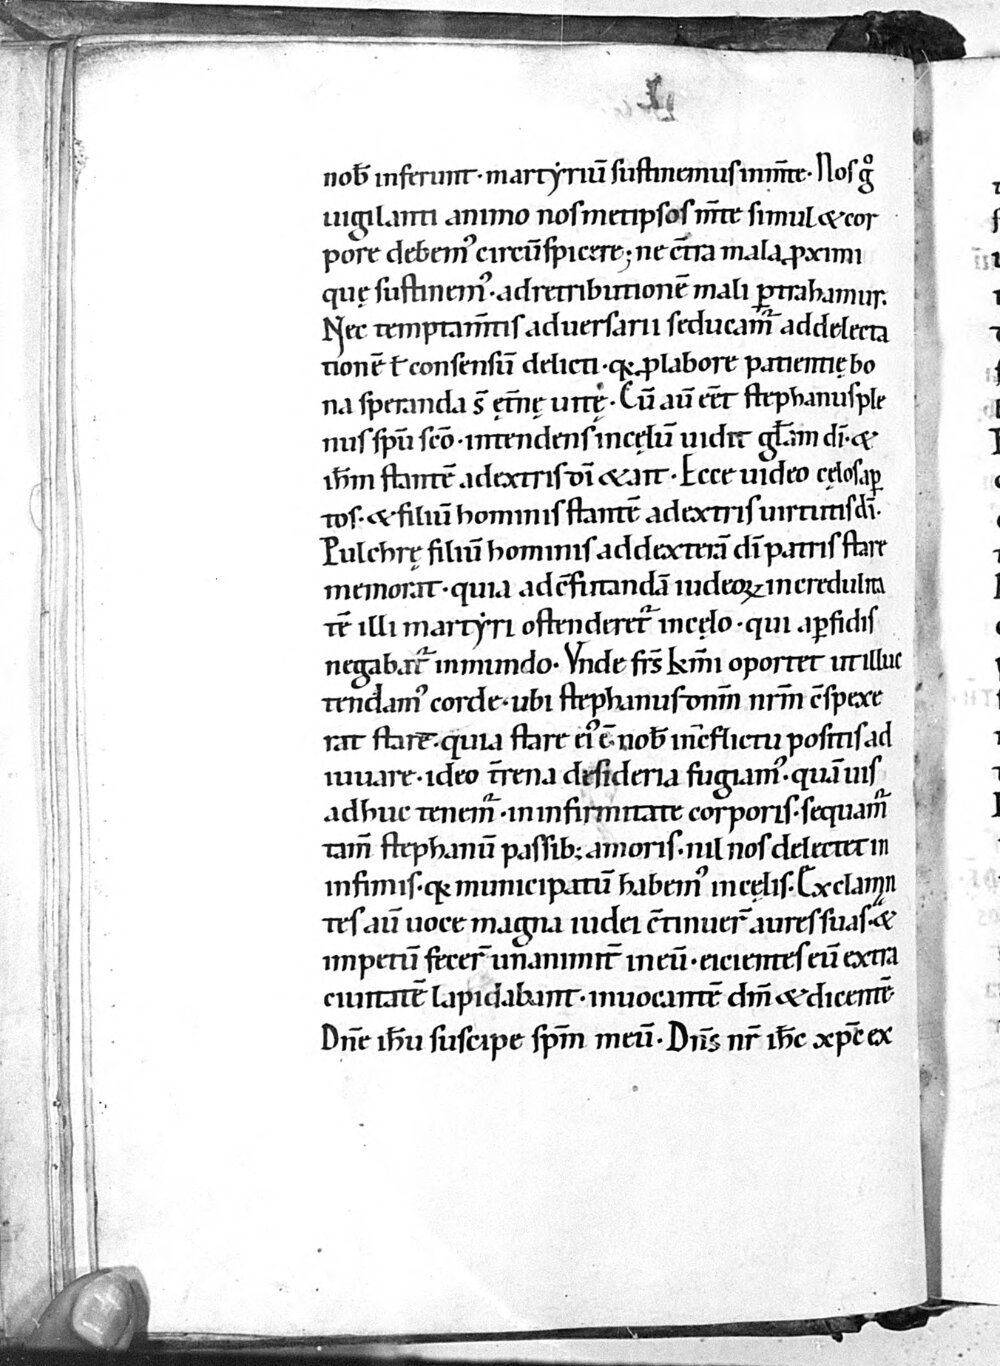 nob̄ inferunt· martẏriū sustinemus in m̄te· Nos gͦ
uigilanti animo nosmetipsos m̄te simul & cor
pore debem᾽ circūspicere; ne c̄tra mala ꝓximi
quę sustinem᾽· ad retributionē mali ꝑtrahamur.
Nec temptam̄tis aduersarii seducam̄ ad delecta
tionē ł consensū delicti· q; ꝓ labore patientię bo
na speranda s̄ ęt̄nę uitę· Cū aū eēt stephanus ple
nus spū sc̄o· intendens in cęlū uidit gl̄am dī· &
ih̄m stantē a dextris dī & ait· Ecce uideo cęlos aꝑ
tos· & filiū hominis stantē a dextris uirtutis dī·
Pulchrę filiū hominis ad dexterā dī patris stare
memorat· quia ad c̄futandā iudeoꝝ incredulita
tē illi martẏri ostenderet᷑ in cęlo· qui a ꝑfidis
negabat᷑ in mundo· Vnde fr̄s km̄i oportet ut illuc
tendam᾽ corde· ubi stephanus dnm̄ nr̄m c̄spexe
rat stare· quia stare ei᾽ ē nob̄ in c̄flictu positis ad
iuuare· ideo t̄rena desideria fugiam᾽· quāuis
adhuc tenem᷑· in infirmitate corporis· sequam᷑
tam̄ stephanū passib; amoris· nil nos delectet in
infimis· q; municipatū habem᾽ in cęlis· Exclaman
tes aū uoce magna iudei c̄tinuer̄ aures suas· &
impetū fecer̄ unanimit̄ in eū· eicientes eū extra
ciuitatē lapidabant· inuocantē dm̄ & dicentē
Dn̄e ih̄u suscipe spm̄ meū· Dn̄s nr̄ ih̄c xp̄c ex